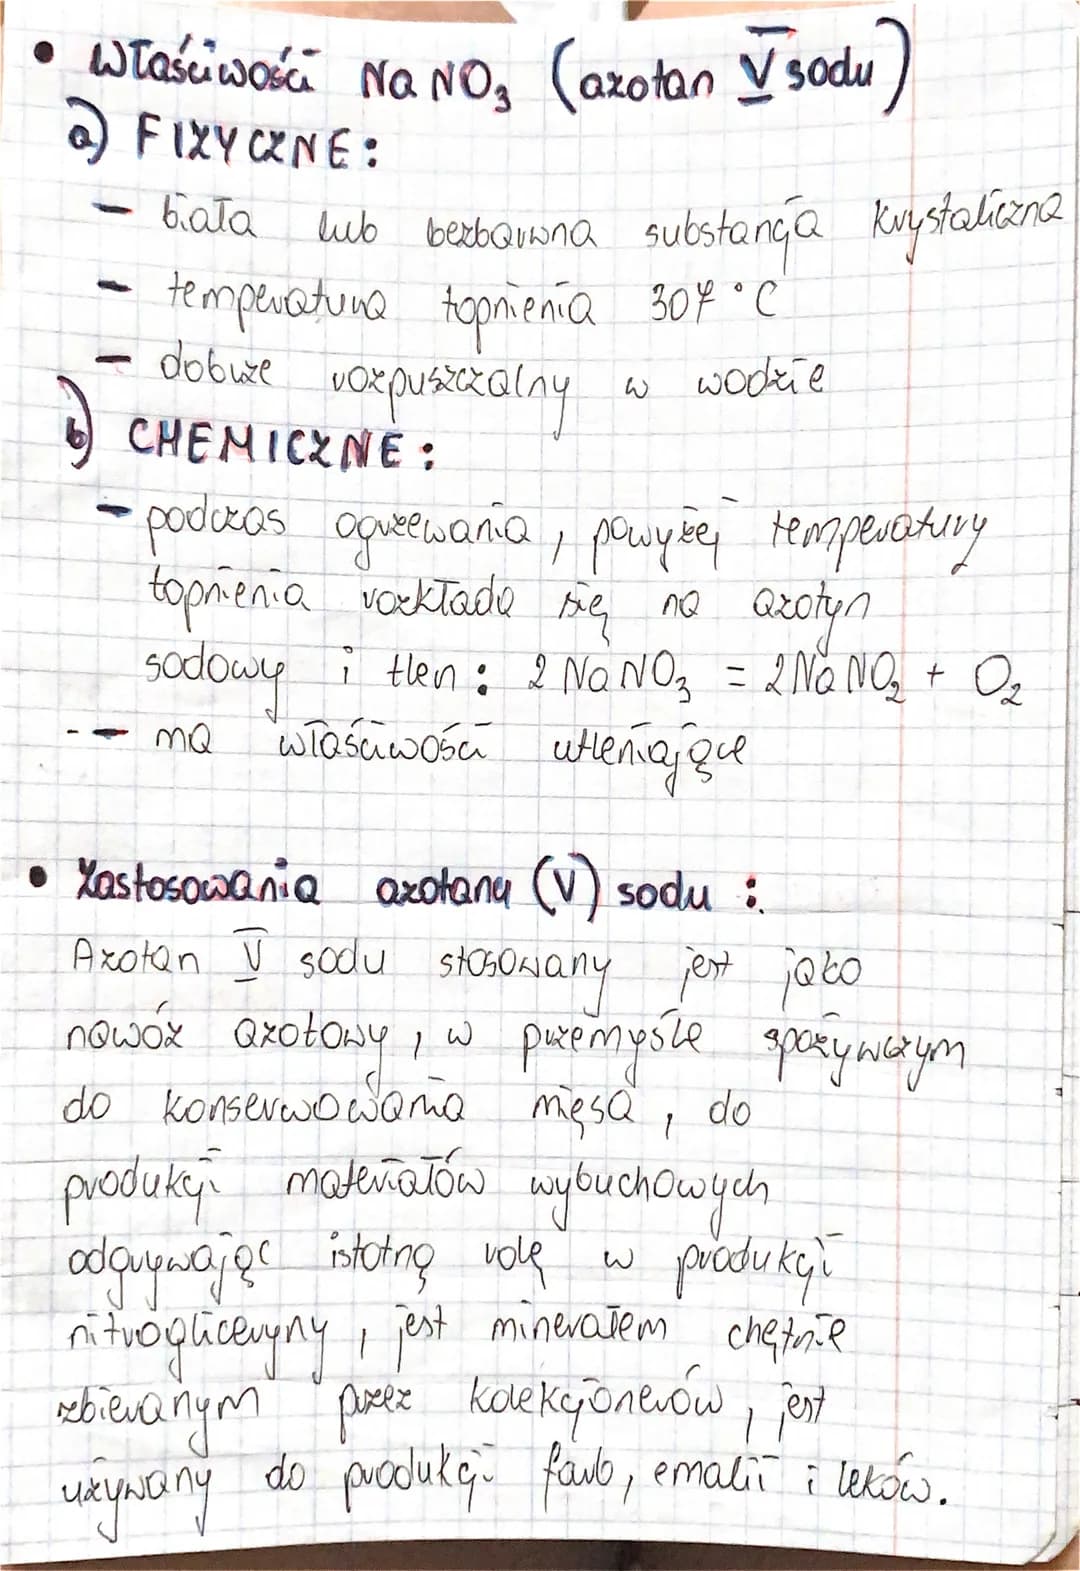 • Właściwości NaNO₃ (azotan V sodu)
a) FIZYCZNE:
– biała lub bezbarwna substancja krystaliczna
– temperatura topnienia 307 °C
– dobrze rozpuszczalny w wodzie
b) CHEMICZNE:
– podczas ogrzewania, powyżej temperatury
topnienia rozkłada się na azotyn
sodowy i tlen: 2 NaNO₃ = 2NaNO₂ + O₂
– ma właściwości utleniające
• Zastosowania azotanu (V) sodu:
Azotan V sodu stosowany jest jako
nawóz azotowy, w przemyśle spożywczym
do konserwowania mięsa, do
produkcji materiałów wybuchowych
odgrywając istotną rolę w produkcji
nitrogliceryny, jest minerałem chętnie
zbieranym przez kolekcjonerów, jest
używany do produkcji farb, emalii i leków.